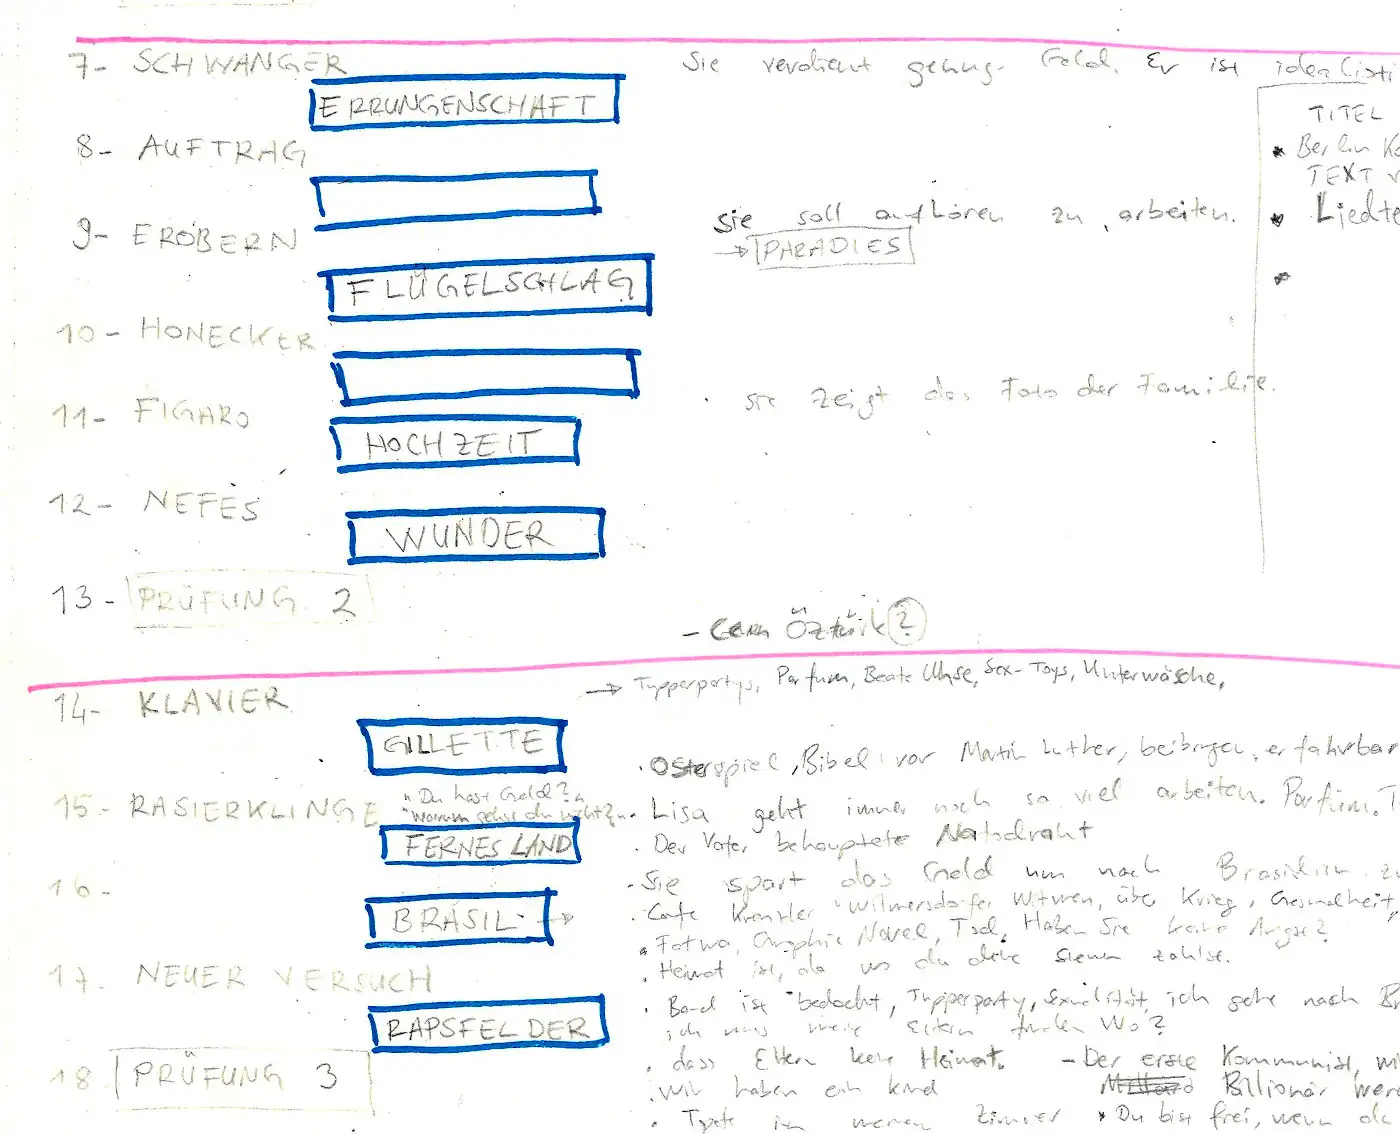 7- SCHWANGER
Sie verdient genug Geld. Er ist idealisti
ERRUNGENSCHAFT
TITEL
8- AUFTRAG
Berlin
TEXT
9- EROBERN
Sie soll aufhören zu arbeiten.
Liedte
→ PARADIES
FLÜGELSCHLAG
10- HONECKER
sie zeigt das Foto der Familie.
11- FIGARO
HOCHZEIT
12- NEFES
WUNDER
13- PRÜFUNG 2
- Cem Öztürk ?
14- KLAVIER
→ Tupperpartys, Parfum, Beate Uhse, Sex-Toys, Unterwäsche,
GILLETTE
Osterspiel, Bibel vor Martin Luther, beibringen, erfahrbar
15- RASIERKLINGE
"Du hast Geld?"
"Warum gehst du nicht?"
Lisa geht immer noch so viel arbeiten. Parfüm. T
FERNES LAND
Der Vater behauptete
16-
Sie spart das Geld um nach Brasilien zu
BRASIL →
Wilmersdorfer Witwen, über Krieg, Gesundheit,
Fatwa, Graphic Novel, Tod, Haben Sie keine Angst?
17. NEUER VERSUCH
Heimat ist, da wo du deine Steuern zahlst.
RAPSFELDER
Band ist bedacht, Tupperparty, Sexualität, ich gehe nach B
ich muss meine Eltern finden Wo?
18 PRÜFUNG 3
dass Eltern keine Heimat. - Der erste Kommunist,
Wir haben ein Kind
Billionär werd
in meinem Zimmer
Du bist frei, wenn